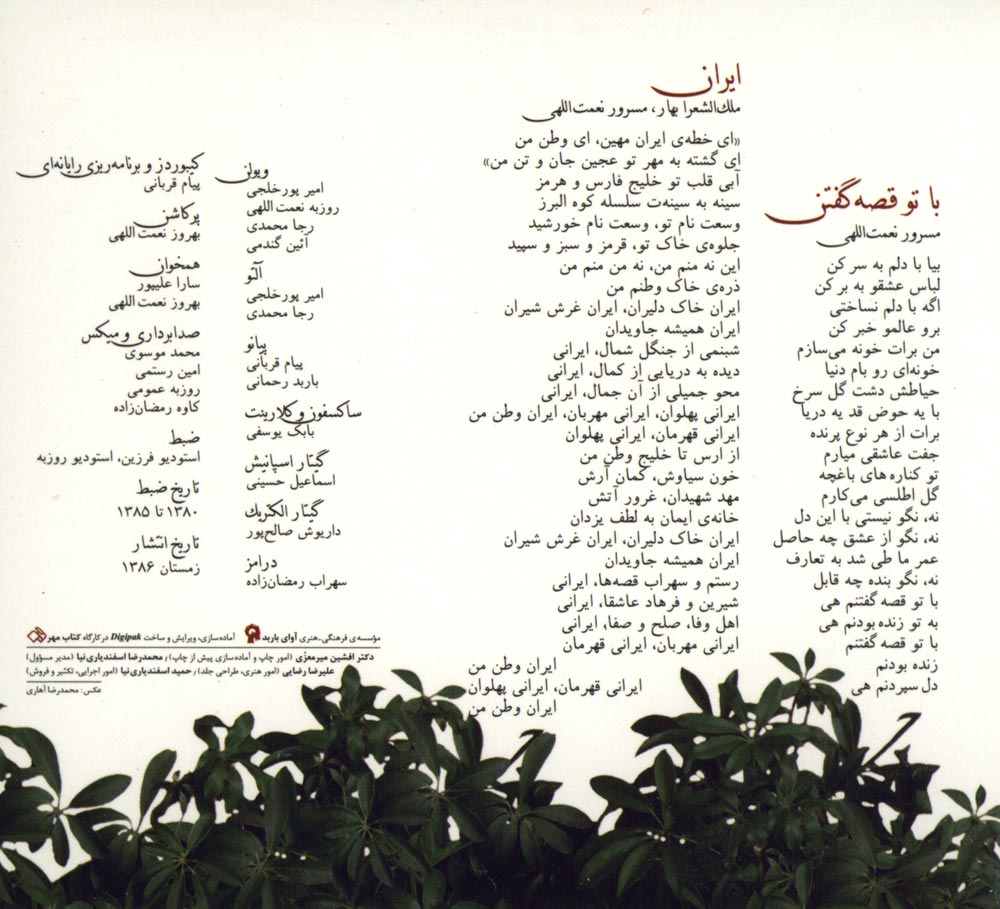 با تو قصه گفتن
مسرور نعمت‌اللهی
بیا با دلم به سر کن
لباس عشقو به بر کن
اگه با دلم نساختی
برو عالمو خبر کن
من برات خونه می‌سازم
خونه‌ای رو بام دنیا
حیاطش دشت گل سرخ
با یه حوض قد یه دریا
برات از هر نوع پرنده
جفت عاشقی میارم
تو کناره های باغچه
گل اطلسی می‌کارم
نه، نگو نیستی با این دل
نه، نگو از عشق چه حاصل
عمر ما طی شد به تعارف
نه، نگو بنده چه قابل
با تو قصه گفتنم هی
به تو زنده بودنم هی
با تو قصه گفتنم
زنده بودنم
دل سپردنم هی
ایران
ملك‌الشعرا بهار، مسرور نعمت‌اللهی
«ای خطه‌ی ایران مهین، ای وطن من
ای گشته به مهر تو عجین جان و تن من»
آبی قلب تو خلیج فارس و هرمز
سینه به سینه‌ت سلسله کوه البرز
وسعت نام تو، وسعت نام خورشید
جلوه‌ی خاک تو، قرمز و سبز و سپید
این نه منم من، نه من منم من
ذره‌ی خاک وطنم من
ایران خاک دلیران، ایران غرش شیران
ایران همیشه جاویدان
شبنمی از جنگل شمال، ایرانی
دیده به دریایی از کمال، ایرانی
محو جمیلی از آن جمال، ایرانی
ایرانی پهلوان، ایرانی مهربان، ایران وطن من
ایرانی قهرمان، ایرانی پهلوان
از ارس تا خلیج وطن من
خون سیاوش، کمان آرش
مهد شهیدان، غرور آتش
خانه‌ی ایمان به لطف یزدان
ایران خاک دلیران، ایران غرش شیران
ایران همیشه جاویدان
رستم و سهراب قصه‌ها، ایرانی
شیرین و فرهاد عاشقا، ایرانی
اهل وفا، صلح و صفا، ایرانی
ایرانی مهربان، ایرانی قهرمان
ایران وطن من
ایرانی قهرمان، ایرانی پهلوان
ایران وطن من
ویولن
امیر پورخلجی
روزبه نعمت‌اللهی
رجا محمدی
آئین گندمی
آلتو
امیر پورخلجی
رجا محمدی
پیانو
پیام قربانی
باربد رحمانی
ساکسفون و کلارینت
بابک یوسفی
گیتار اسپانیش
اسماعیل حسینی
گیتار الکتریك
داریوش صالح‌پور
درامز
سهراب رمضان‌زاده
کیبوردز و برنامه‌ریزی رایانه‌ای
پیام قربانی
پرکاشن
بهروز نعمت‌اللهی
همخوان
سارا علیپور
بهروز نعمت‌اللهی
صدابرداری و میکس
محمد موسوی
امین رستمی
روزبه عمومی
کاوه رمضان‌زاده
ضبط
استودیو فرزین، استودیو روزبه
تاریخ ضبط
۱۳۸۰ تا ۱۳۸۵
تاریخ انتشار
زمستان ۱۳۸۶
مؤسسه‌ی فرهنگی-هنری آوای باربد آماده‌سازی، ویرایش و ساخت Digipak در کارگاه کتاب مهر
دکتر افشین میرمعزّی (امور چاپ و آماده‌سازی پیش از چاپ) / محمدرضا اسفندیاری‌نیا (مدیر مسؤول)
علیرضا رضایی (امور هنری، طراحی جلد) / حمید اسفندیاری‌نیا (امور اجرایی، تکثیر و فروش)
عکس: محمدرضا آهاری